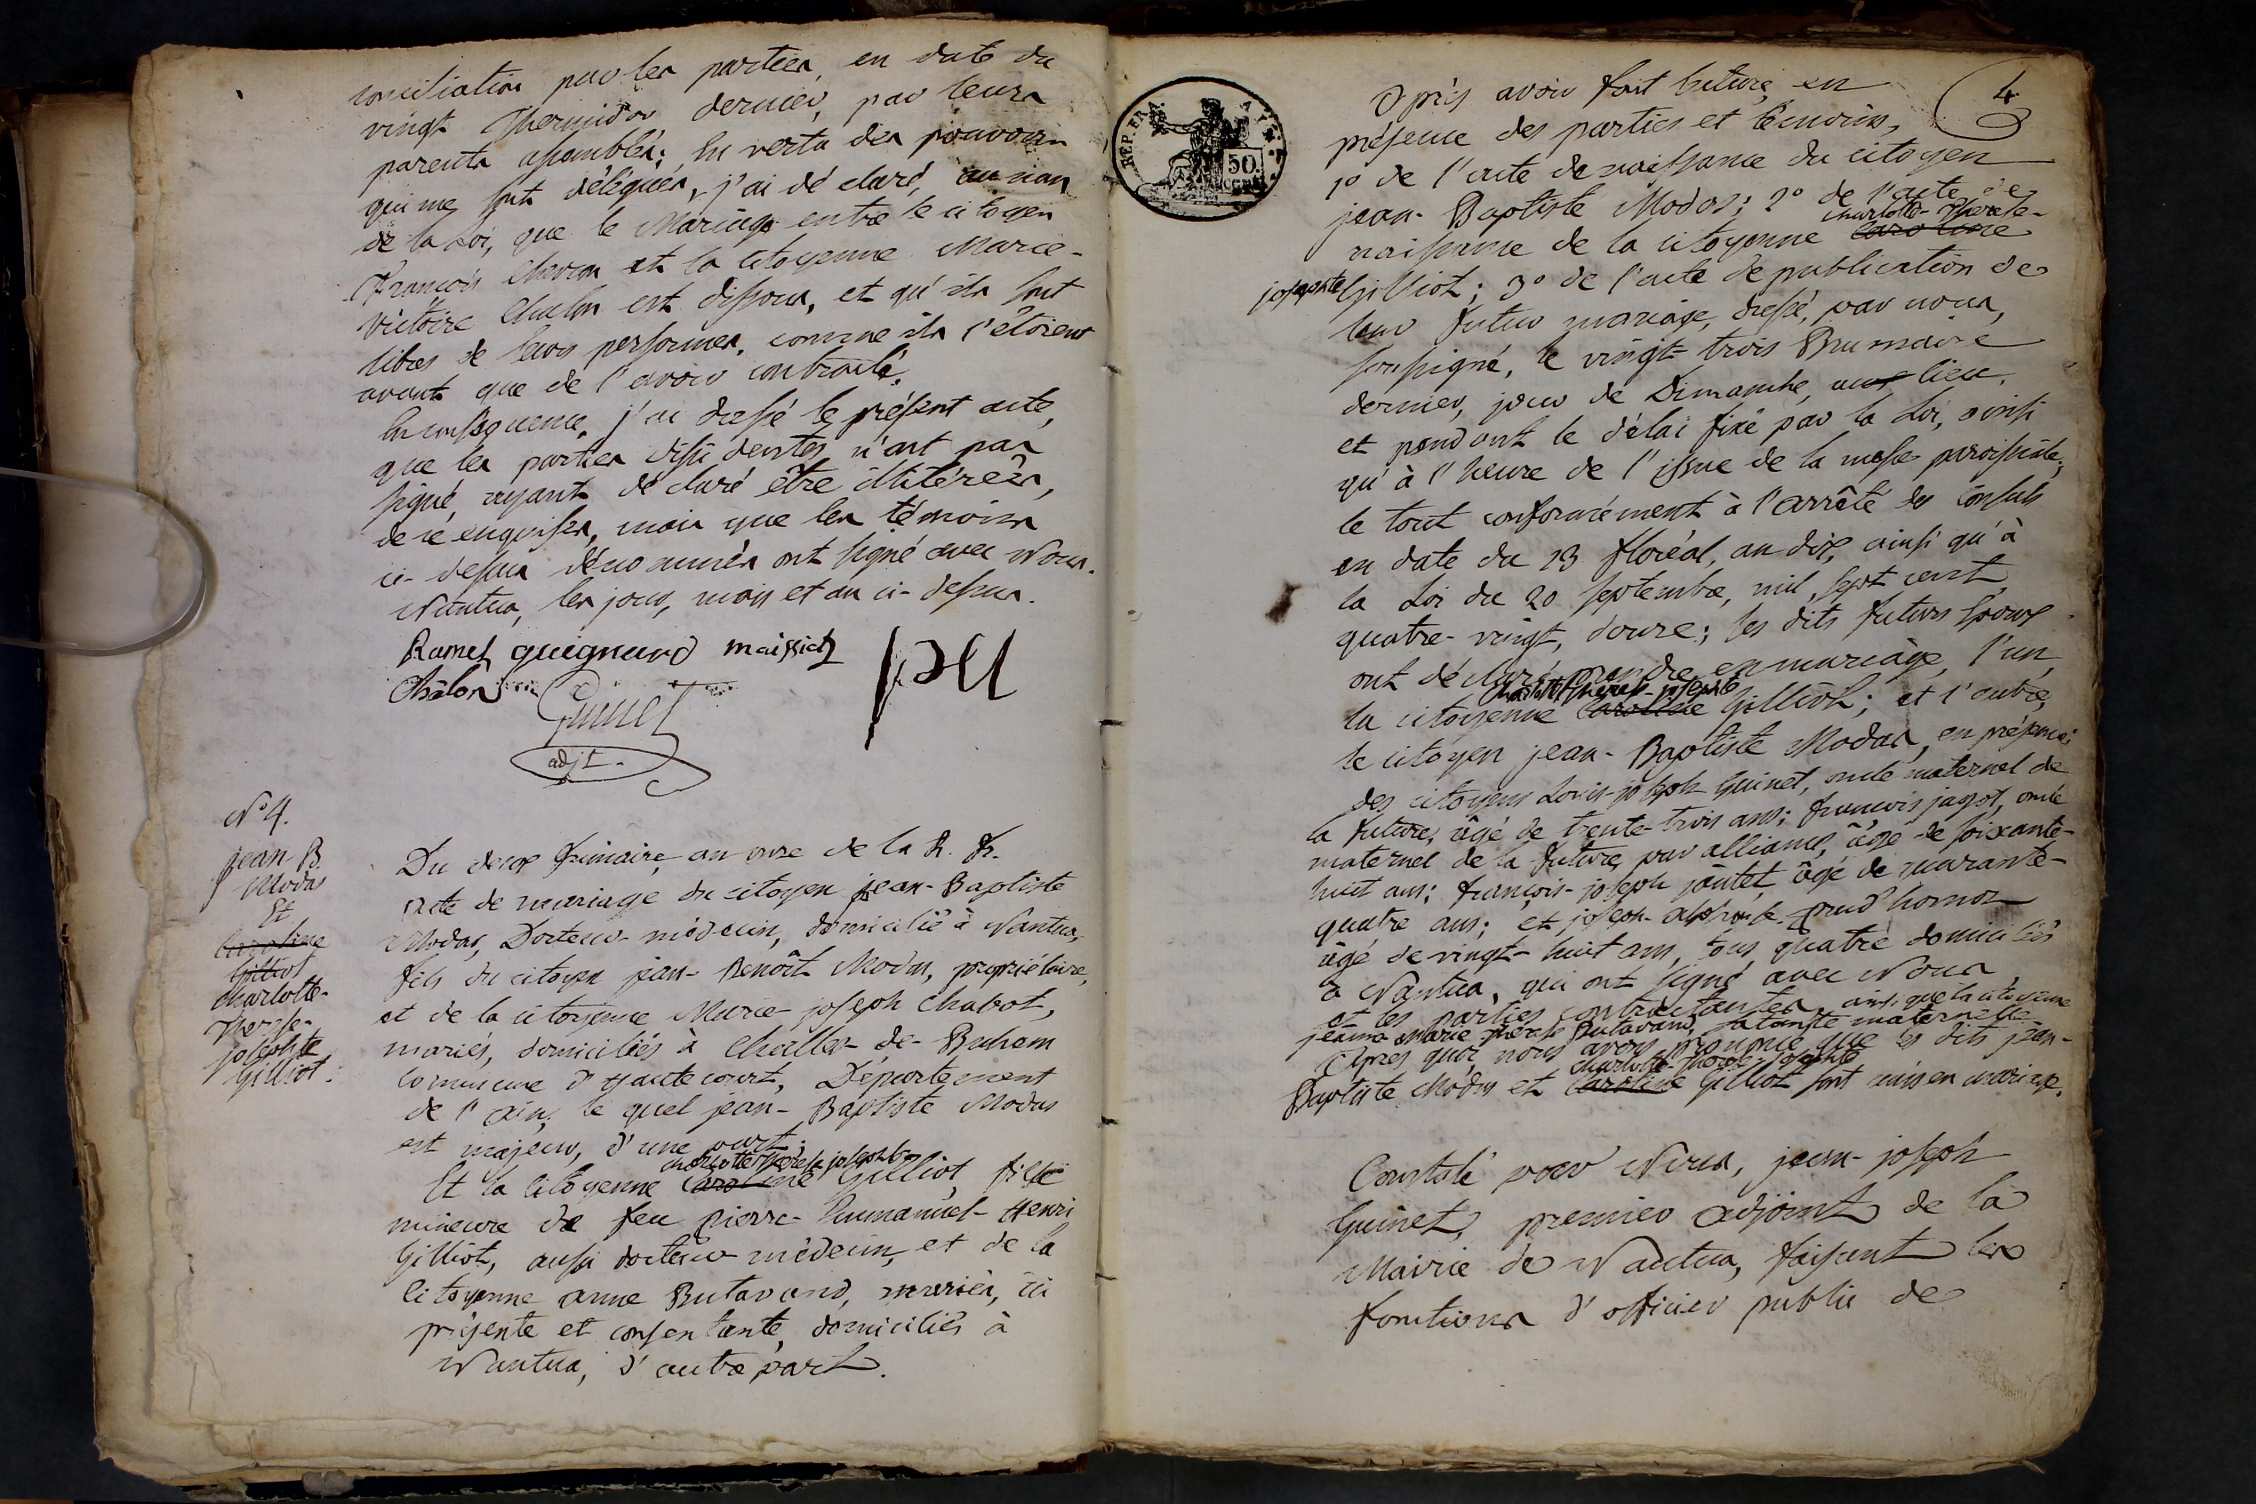 conciliation par les parties, en date du
vingt Thermidor dernier, par leurs
parents assemblés; En vertu des pouvoirs
qui me sont délégués, j'ai déclaré, au nom
de la Loi, que le Mariage entre le citoyen
François et la citoyenne Marie-
Victoire Chalon est dissous, et qu'ils sont
libres de leurs personnes, comme ils l'étoient
avant que de l'avoir contracté.
En conséquence, j'ai dressé le présent acte,
que les parties n'ont pas
signé, ayant déclaré être illitérées,
de ce enquises, mais que les témoins
ci-dessus dénommés ont signé avec Nous.
Nantua, les jour, mois et an ci-dessus.
Ramel guignard maissiat
Châlon
Guinet
adjt.
N° 4.
jean-B.
Modas
Et
Caroline
Gilliot
Charlotte-
Therese-
josephte
Gilliot.
Du deux frimaire, an onze de la R. fr.
Acte de mariage du citoyen jean-Baptiste
Modas, Docteur-médecin, domicilié à Nantua,
fils du citoyen jean-Benoît Modas, propriétaire,
et de la citoyenne Marie-joseph Chabot,
mariés, domiciliés à Challes-de-Bohem
commune d'hautecourt, Département
de l'ain, le quel jean-Baptiste Modas
est majeur, d'une part;
charlotte therese josephte
Et la citoyenne Caroline Gilliot, fille
mineure de feu pierre-Emmanuel-Henri
Gilliot, aussi docteur médecin, et de la
citoyenne anne Butavand, mariés, ici
présente et consentante, domiciliés à
Nantua, d'autre part.
REP. FRA.
50.
4
Après avoir fait lecture, en
présence des parties et témoins,
1° de l'acte de naissance du citoyen
jean-Baptiste Modas; 2° de l'acte de
charlotte-Therese-
naissance de la citoyenne Caroline
josephte Gilliot; 3° de l'acte de publication de
leur futur mariage, dressé, par nous,
soussigné, le vingt-trois Brumaire
dernier, jour de Dimanche, aux lieu,
et pendant le délai fixé par la Loi, ainsi
qu'à l'heure de l'issue de la messe paroissiale;
le tout conformément à l'arrêté des Consuls
en date du 13 floréal, an dix, ainsi qu'à
la Loi du 20 septembre, mil, sept cent
quatre-vingt, douze; les dits futurs Epoux
ont déclaré prendre en mariage, l'un,
Charlotte therese-josephte
la citoyenne Caroline Gilliot; et l'autre,
le citoyen jean-Baptiste Modas, en présence
des citoyens Louis-joseph Guinet, oncle maternel de
la future, âgé de trente-trois ans; françois jagot, oncle
maternel de la future, par alliance, âgé de soixante-
huit ans; françois-joseph jantet, âgé de quarante-
quatre ans; et joseph-alphonse prud'homor
âgé de vingt-huit ans, tous quatre domiciliés
à Nantua, qui ont signé avec Nous
et les parties contractantes, ainsi que la citoyenne
jeanne Marie therese Butavand, sa tante maternelle.
Après quoi nous avons prononcé que les dits jean-
charlotte-therese-josephte
Baptiste Modas et Caroline Gilliot sont unis en mariage.
Constaté par Nous, jean-joseph
Guinet, premier adjoint de la
Mairie de Nantua, faisant les
fonctions d'officier public de